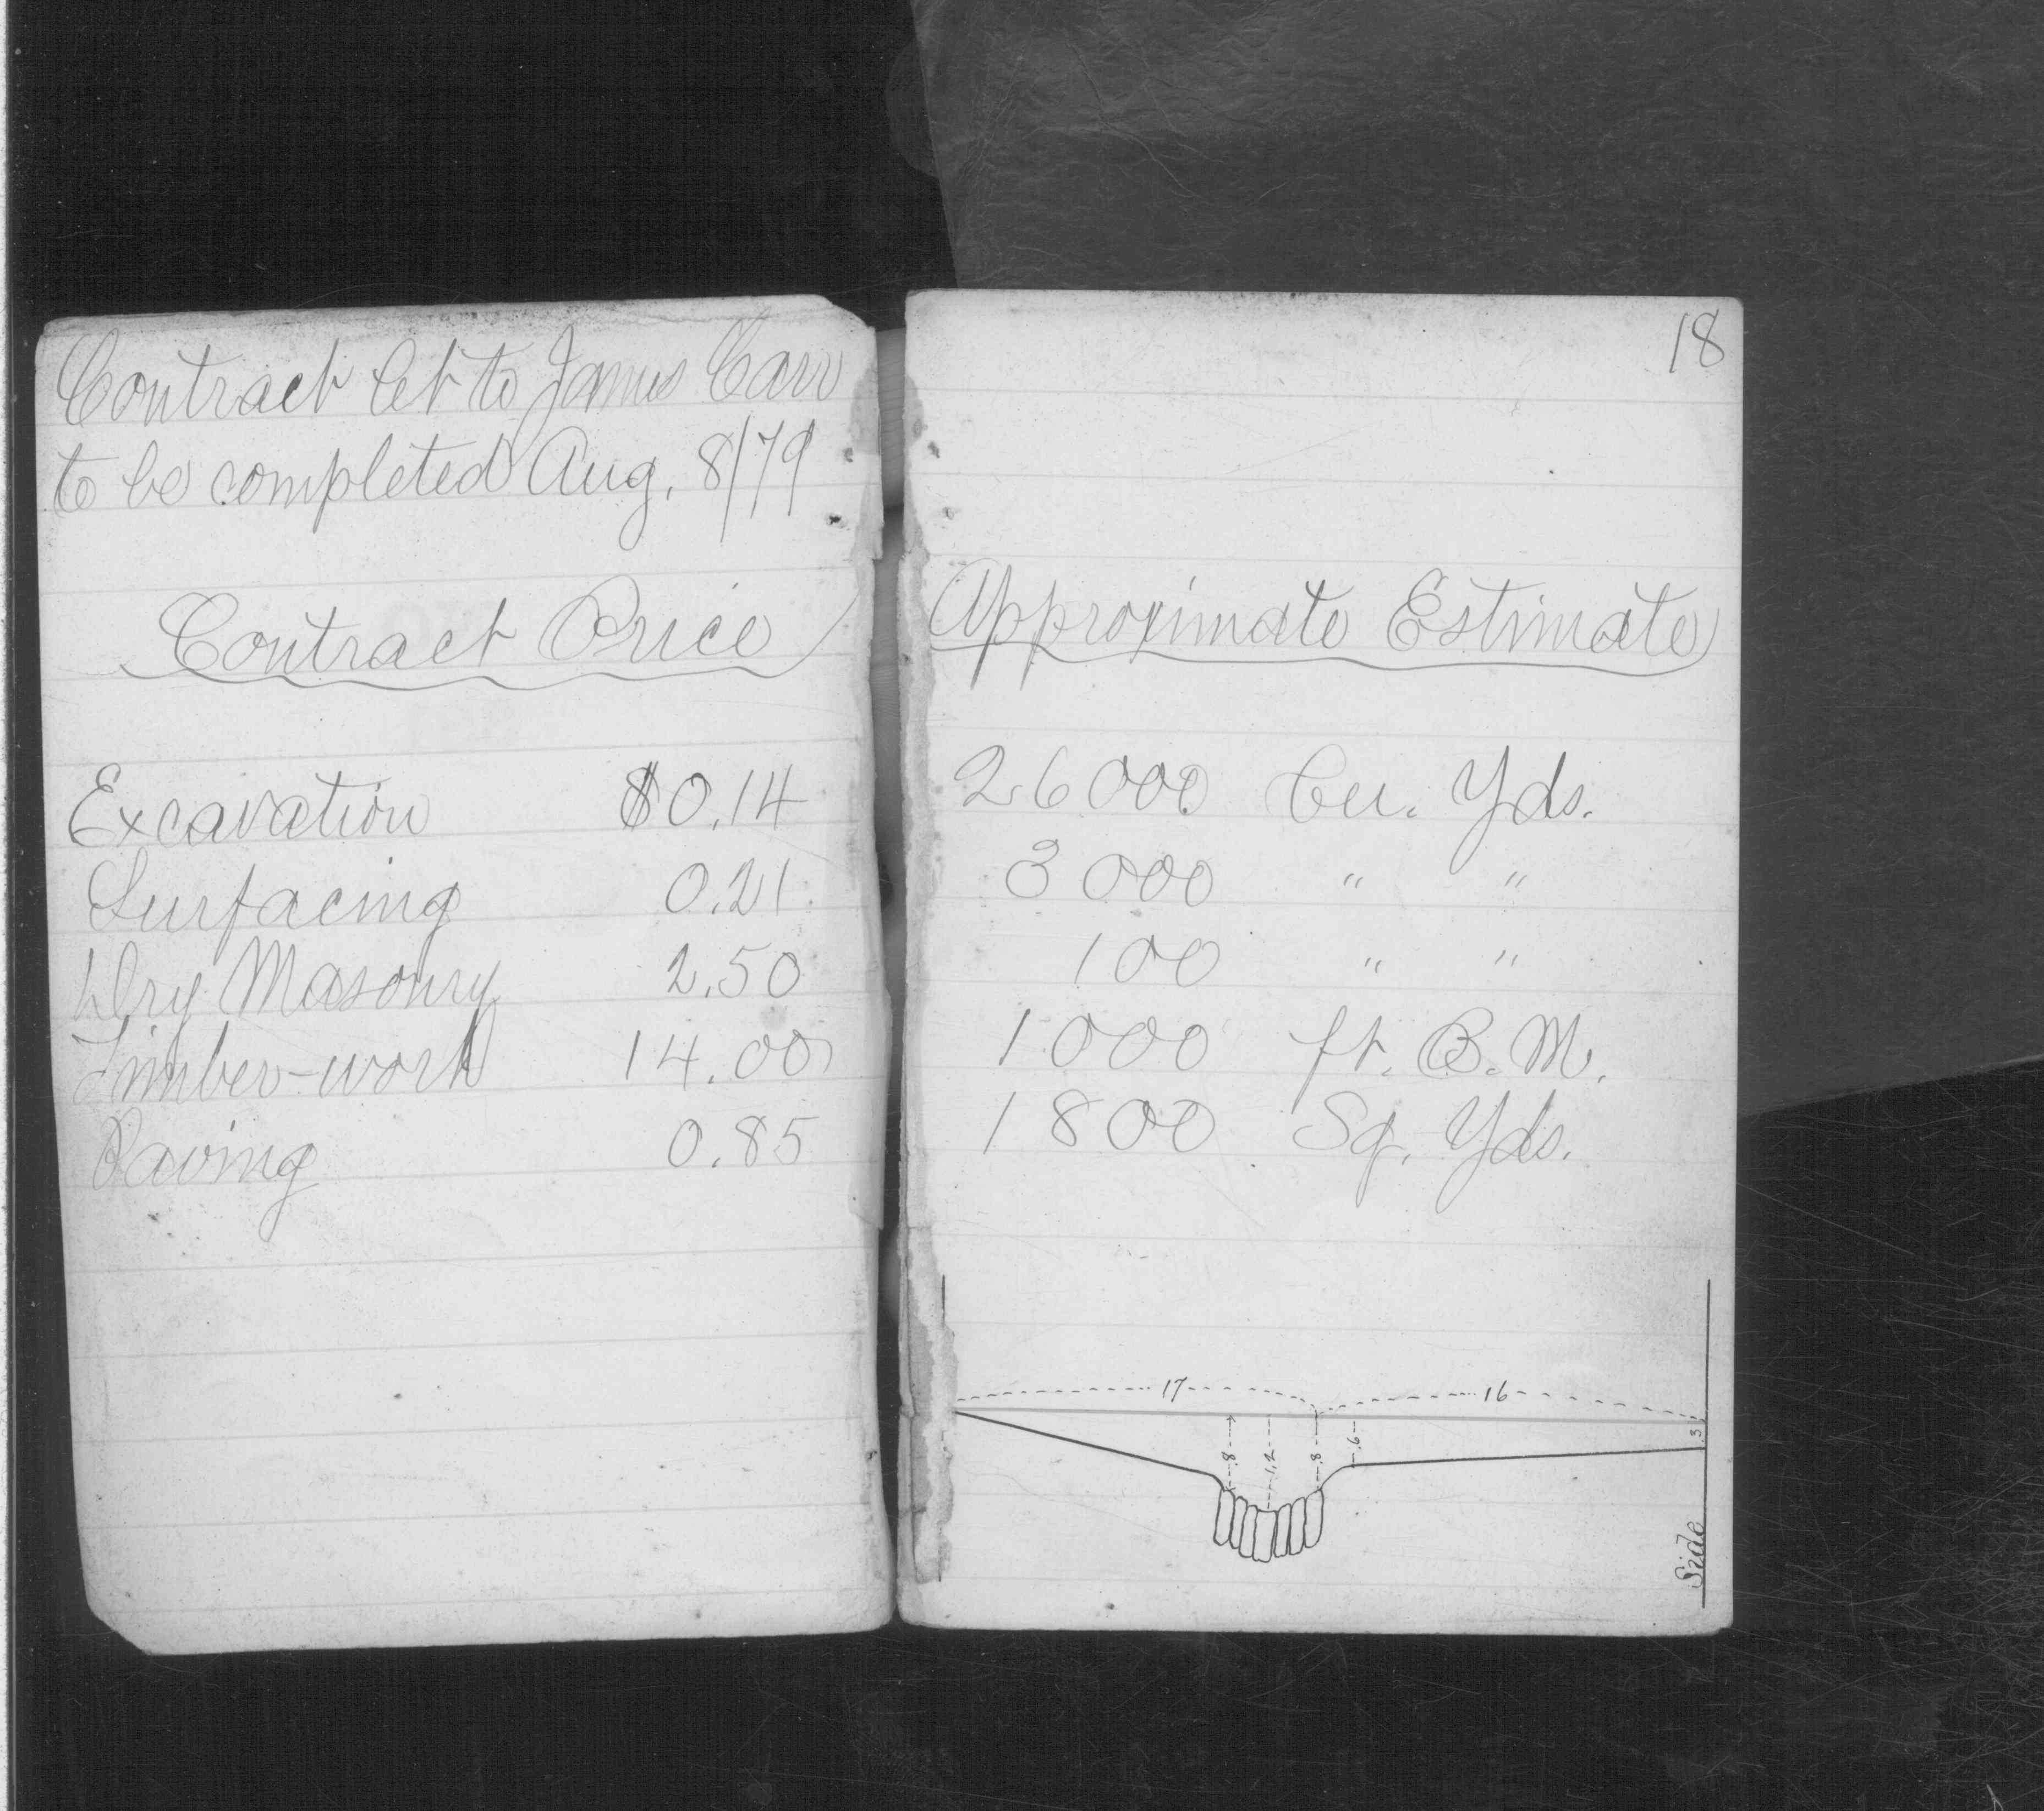 Contract let to James Carr
to be completed Aug. 8/79
Contract Price
Excavation $0.14
Surfacing 0.21
Dry Masonry 2.50
Timber-work 14.00
Paving 0.85
18
Approximate Estimate
26000 Cu. Yds.
3000 " "
100 " "
1000 ft. B.M.
1800 Sq. Yds.
17 16
.8 1.2 .8 .6 .3
Side